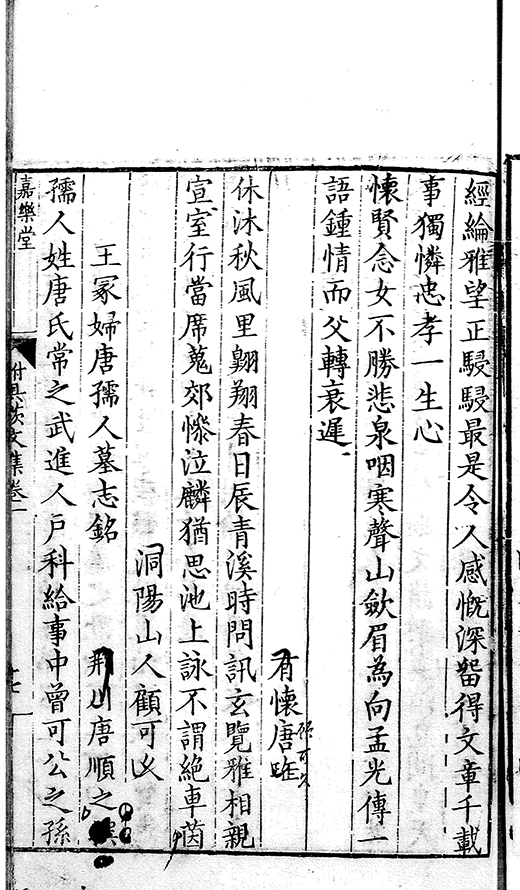 經綸雅望正駸駸最是令人感慨深畱得文章千載
事獨憐忠孝一生心
懷賢念女不勝悲泉咽寒聲山歛眉為向孟光傳一
語鍾情而父轉衰遲
有懷唐
休沐秋風里翺翔春日辰青溪時問訊玄覽雅相親
宣室行當席蒐郊慘泣麟猶思池上詠不謂絶車茵
洞陽山人顧可久
王冢婦唐孺人墓志銘
荆川唐順之
孺人姓唐氏常之武進人戶科給事中曾可公之孫
嘉樂堂
文集卷一